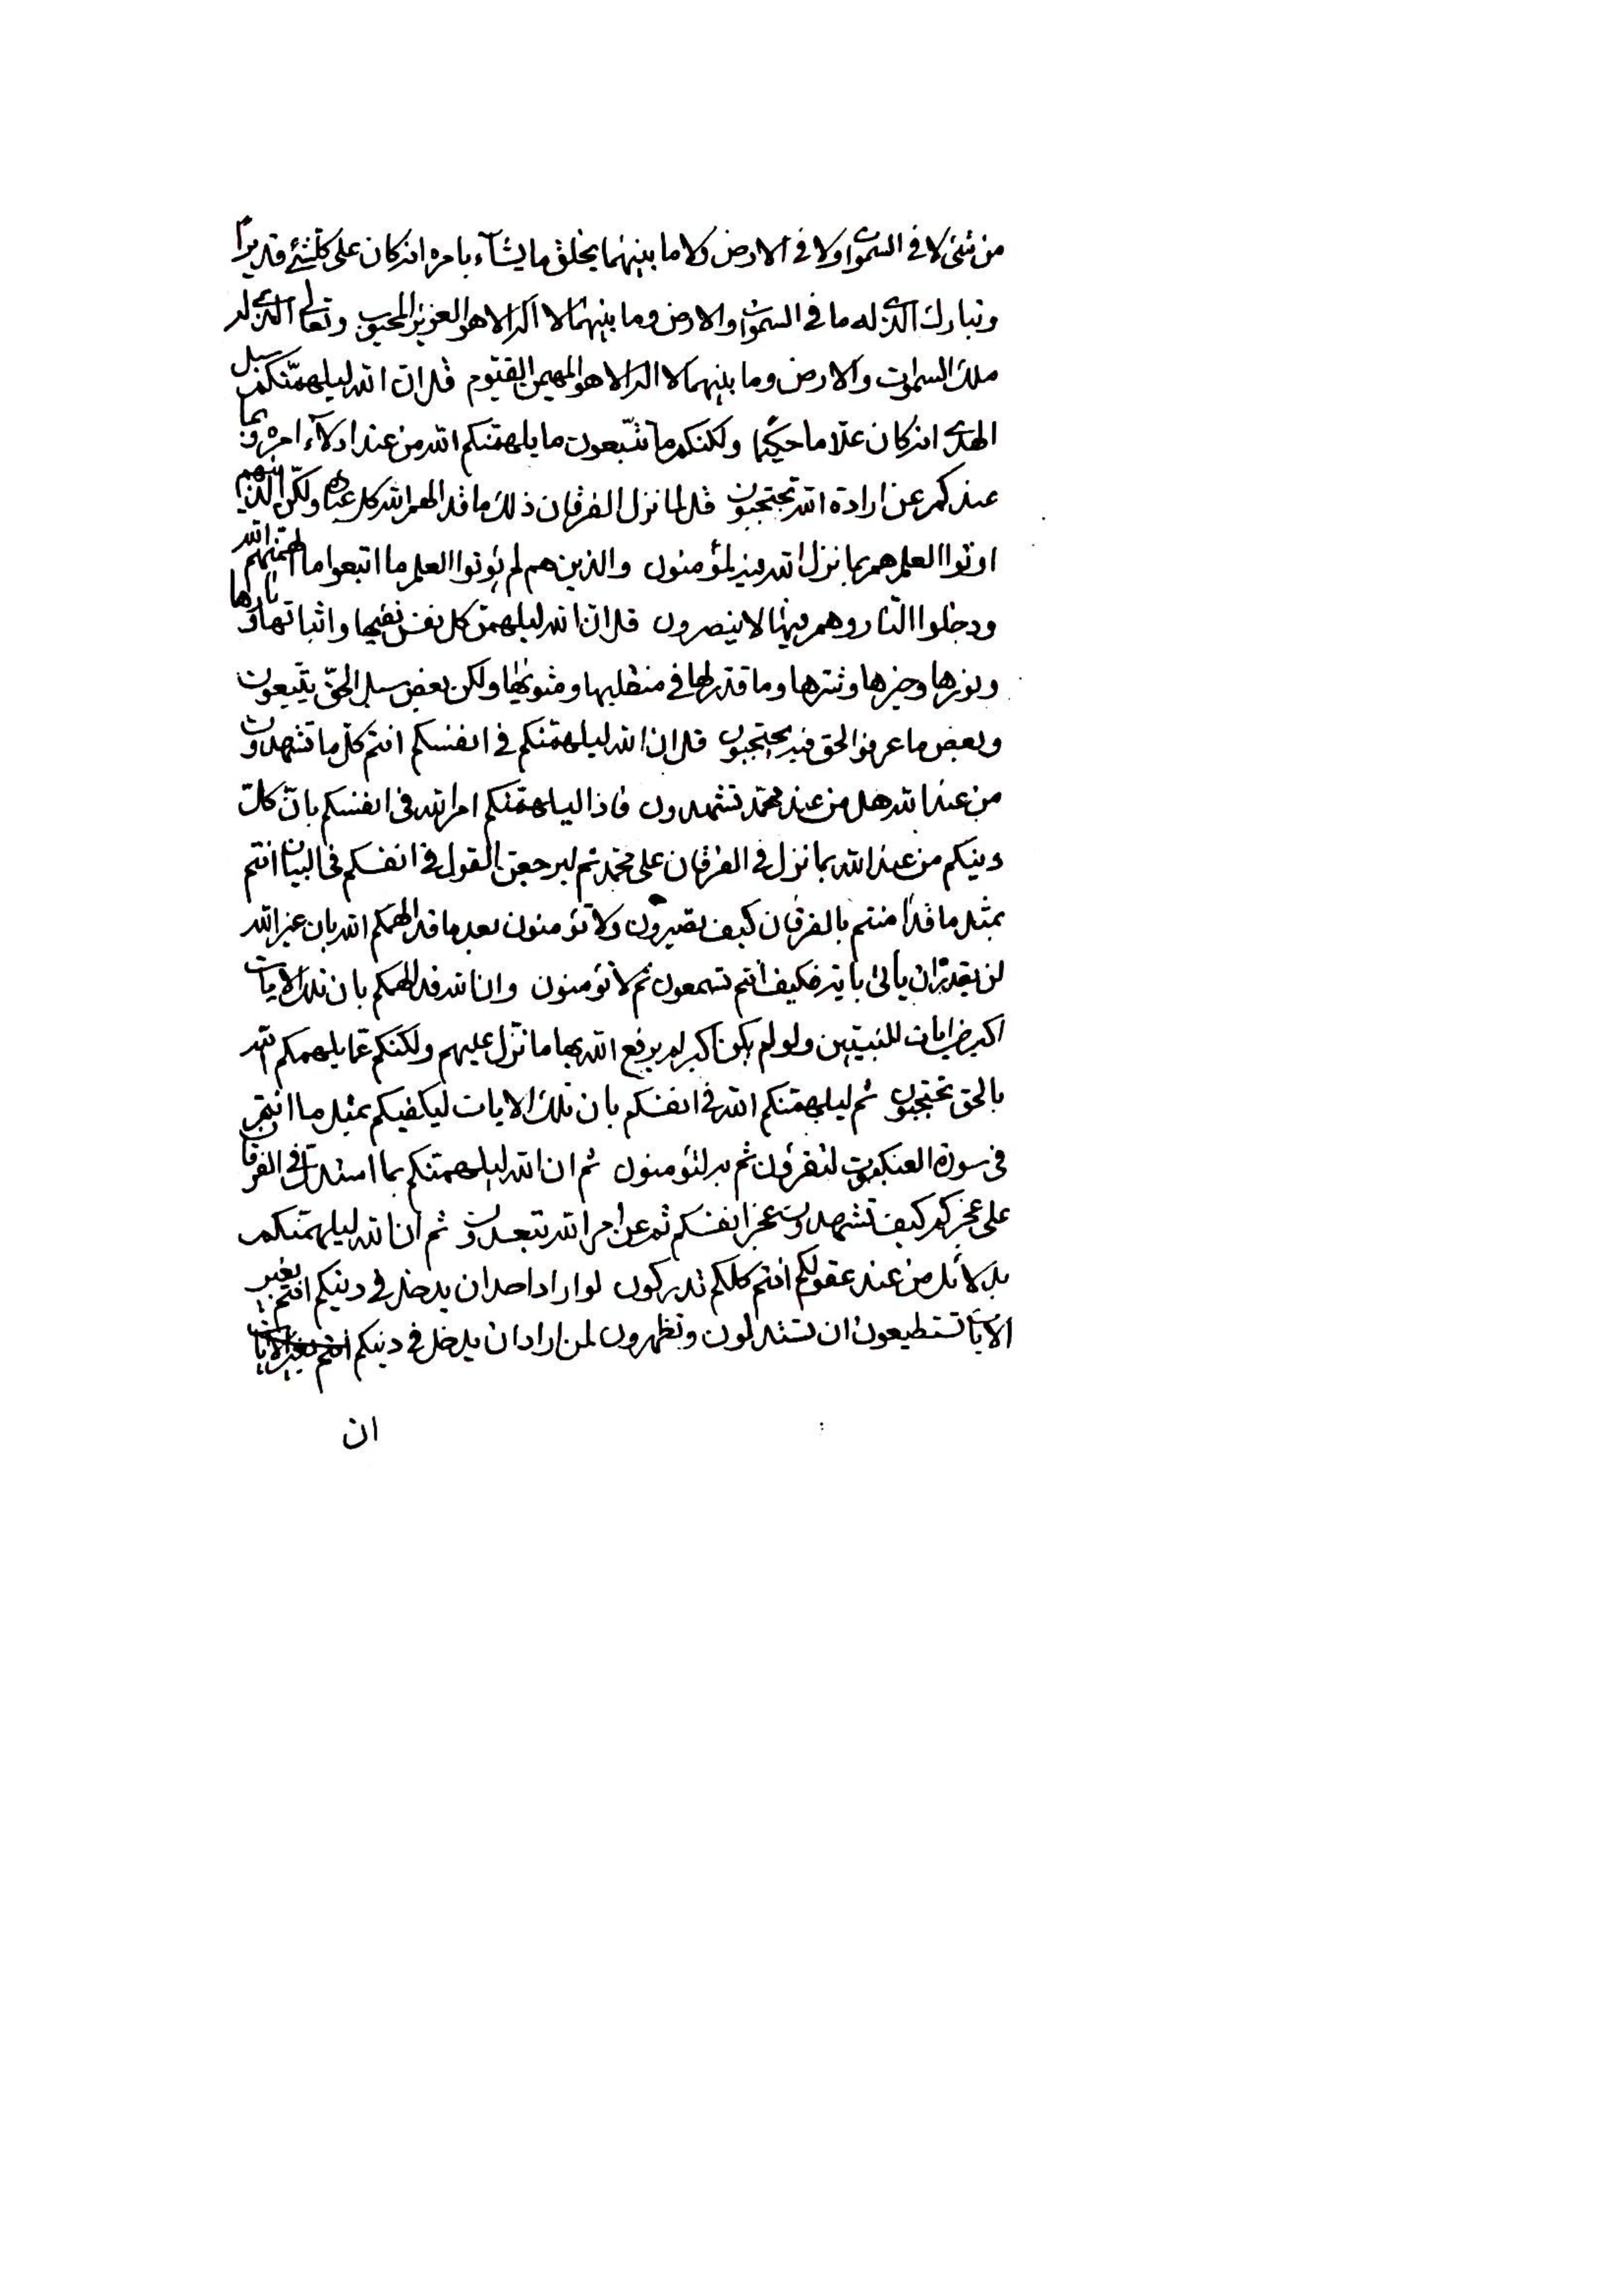 من شئ لا في السموات ولا في الارض ولا ما بينهما يخلق ما يشآء بامره انه كان على كلشئ قديرا
وتبارك الذي له ما في السموات والارض وما بينهما لا اله الا هو العزيز المحبوب وتعالى الذي له
ملك السموات والارض وما بينهما لا اله الا هو المهيمن القيوم قل ان الله ليلهمنكم سبل
الهدى انه كان علاما حكيما ولكنكم ما تتبعون ما يلهمنكم الله من عند ادلاء امره وبما
عندكم عن ارادة الله تحتجبون قل لما نزل الفرقان ذلك ما قد الهم الله كل عباده ولكن الذينهم
اوتوا العلم هم بما نزل الله فيه لمؤمنون والذين هم لم يؤتوا العلم ما اتبعوا ما الهمنهم الله
ودخلوا النار وهم فيها لا ينصرون قل ان الله ليلهمن كل نفس نفيها واثباتها ونارها
ونورها وخيرها وشرها وما قدر لها في منقلبها ومثويها ولكن بعض سبل الحق يتبعون
وبعض ما عرفوا الحق فيه يحتجبون قل ان الله ليلهمنكم في انفسكم انتم كل ما تشهدون
من عند الله هل من عند محمد تشهدون فاذا ليلهمنكم امر الله في انفسكم بان كل
دينكم من عند الله بما نزل في الفرقان على محمد ثم ليرجعن القول في انفسكم في البيان انتم
بمثل ما قد امنتم بالفرقان كيف تصبرون ولا تؤمنون بعد ما قد الهمكم الله بان غير الله
لن يقدر ان يأتي باية فكيف انتم تسمعون ثم لا تؤمنون وان الله قد الهمكم بان تلك الايات
اكبر من ايات للنبيين ولو لم يكن اكبر لم يرفع الله بها ما نزل عليهم ولكنكم عما يلهمكم الله
بالحق تحتجبون ثم ليلهمنكم الله في انفسكم بان تلك الايات ليكفيكم بمثل ما انتم
في سورة العنكبوت لتقرؤن ثم به لتؤمنون ثم ان الله ليلهمنكم بما استدل في الفرقان
على عجزكم كيف تشهدون عجز انفسكم ثم عن امر الله تبعدون ثم ان الله ليلهمنكم
بدلائل من عند عقولكم انتم كلكم تدركون لو اراد احد ان يدخل في دينكم انتم بغير
الايات تستطيعون ان تستدلون وتظهرون لمن اراد ان يدخل في دينكم انتم بغير الايات
ان